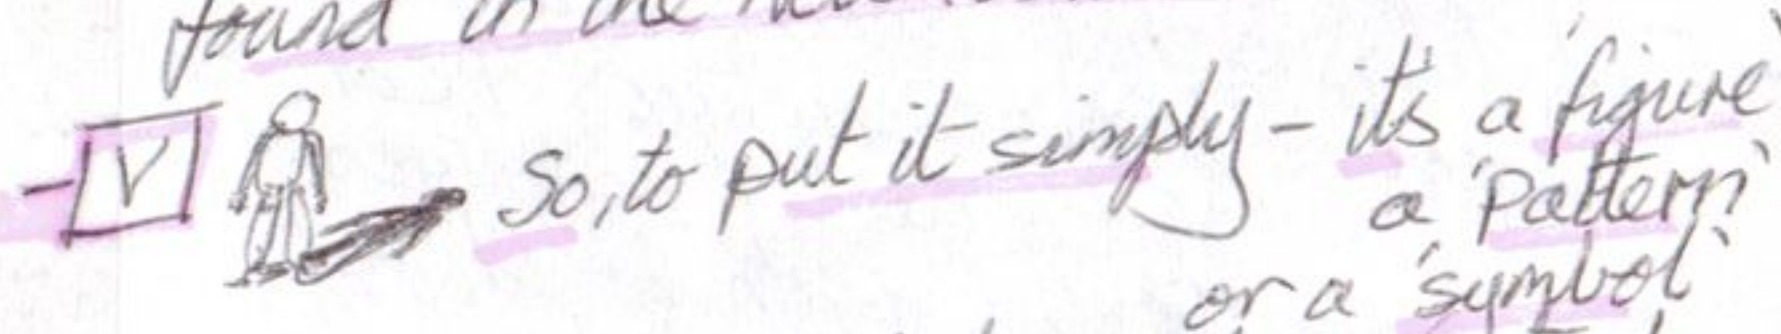 found in the
V So, to put it simply - it's a 'figure'
a 'pattern'
or a 'symbol'